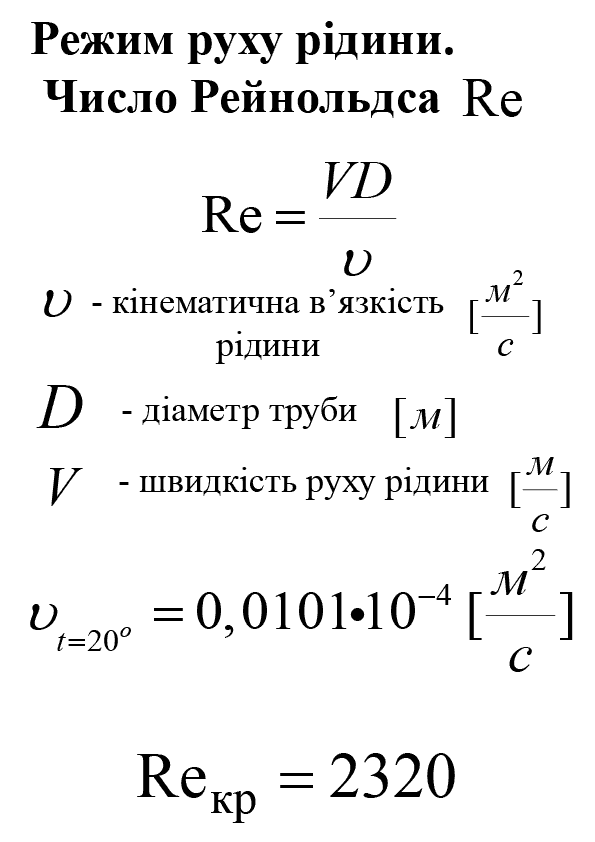 Режим руху рідини.
Число Рейнольдса Re
Re = VD / υ
υ - кінематична в’язкість [м² / с]
рідини
D - діаметр труби [м]
V - швидкість руху рідини [м / с]
υ t=20° = 0,0101•10⁻⁴ [м² / с]
Re кр = 2320